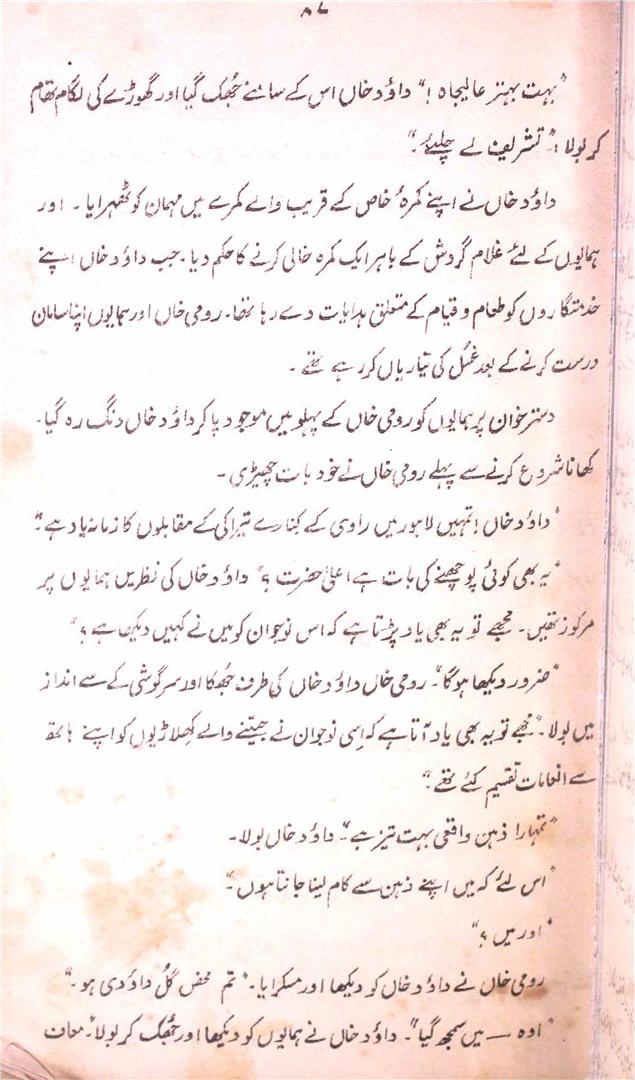 ۸۷
"بہت بہتر عالیجاہ!" داؤد خاں اس کے سامنے جھک گیا اور گھوڑے کی لگام تھام
کر بولا: "تشریف لے چلیئے۔"
داؤد خاں نے اپنے کمرۂ خاص کے قریب والے کمرے میں مہمان کو ٹھہرایا۔ اور
ہمایوں کے لئے غلام گردش کے باہر ایک کمرہ خالی کرنے کا حکم دیا۔ جب داؤد خاں اپنے
خدمتگاروں کو طعام و قیام کے متعلق ہدایات دے رہا تھا۔ رومی خاں اور ہمایوں اپنا سامان
درست کرنے کے بعد غسل کی تیاریاں کر رہے تھے۔
دسترخوان پر ہمایوں کو رومی خاں کے پہلو میں موجود پا کر داؤد خاں دنگ رہ گیا۔
کھانا شروع کرنے سے پہلے رومی خاں نے خود بات چھیڑی۔
"داؤد خاں! تمہیں لاہور میں راوی کے کنارے تیراکی کے مقابلوں کا زمانہ یاد ہے"
"یہ بھی کوئی پوچھنے کی بات ہے اعلیٰ حضرت؟" داؤد خاں کی نظریں ہمایوں پر
مرکوز تھیں۔ مجھے تو یہ بھی یاد پڑتا ہے کہ اس نوجوان کو میں نے کہیں دیکھا ہے؟"
"ضرور دیکھا ہوگا"۔ رومی خاں داؤد خاں کی طرف جھکا اور سرگوشی کے سے انداز
میں بولا۔ "مجھے تو یہ بھی یاد آتا ہے کہ اِسی نوجوان نے جیتنے والے کھلاڑیوں کو اپنے ہاتھ
سے انعامات تقسیم کئے تھے۔"
"تمہارا ذہن واقعی بہت تیز ہے"۔ داؤد خاں بولا۔
"اس لئے کہ میں اپنے ذہن سے کام لینا جانتا ہوں۔"
"اور میں؟"
رومی خاں نے داؤد خاں کو دیکھا اور مسکرایا۔ "تم محض گُل داؤدی ہو۔"
"اوہ — میں سمجھ گیا"۔ داؤد خاں نے ہمایوں کو دیکھا اور جھک کر بولا۔ "معاف